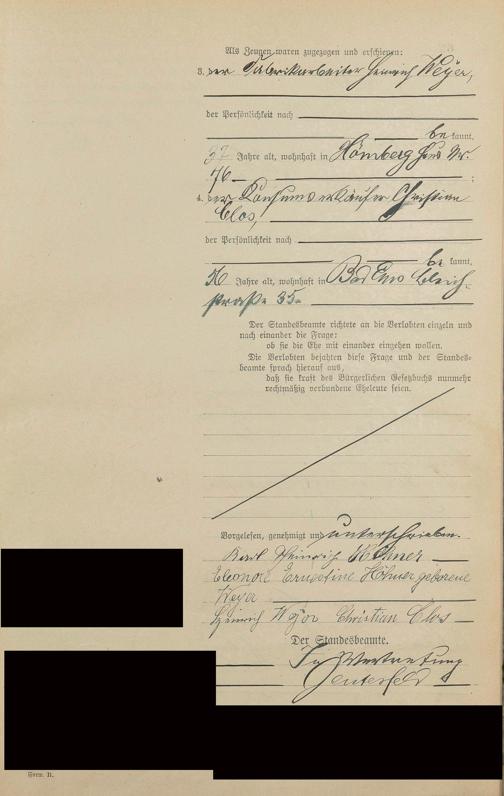 Als Zeugen waren zugezogen und erschienen:
3. der Fabrikarbeiter Heinrich Weyer,
der Persönlichkeit nach
be kannt,
37 Jahre alt, wohnhaft in Hömberg Haus Nr.
76 ;
4. der Konsumverkäufer Christian
Clos,
der Persönlichkeit nach
be kannt,
Jahre alt, wohnhaft in Bad Ems Bleich-
straße 35.
Der Standesbeamte richtete an die Verlobten einzeln und
nach einander die Frage:
ob sie die Ehe mit einander eingehen wollen.
Die Verlobten bejahten diese Frage und der Standes-
beamte sprach hierauf aus,
daß sie kraft des Bürgerlichen Gesetzbuchs nunmehr
rechtmäßig verbundene Eheleute seien.
Vorgelesen, genehmigt und unterschrieben.
Karl Heinrich Höhner
Eleonore Ernestine Höhner geborene
Weyer
Heinrich Weyer Christian Clos
Der Standesbeamte.
In Vertretung
Form. B.